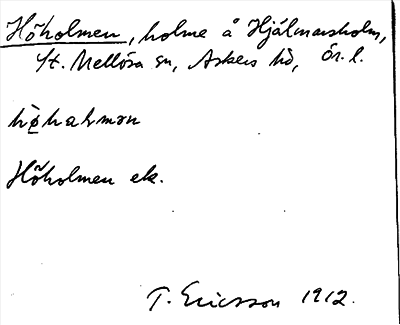 Höholmen, holme å Hjálmarsholm,
St. Mellösa sn, Askers hd, Ör. l.
Höholmen ek.
T. Ericsson 1912.